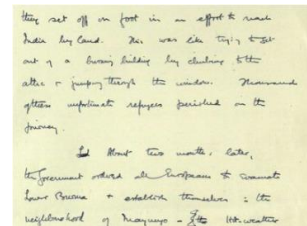 they set off on foot in an effort to reach
India by land. This was like trying to get
out of a burning building by climbing to the
attic & jumping through the window. Thousands
of these unfortunate refugees perished on the
journey.
About two months later,
the Government ordered all Europeans to evacuate
Lower Burma & establish themselves in the
neighbourhood of Maymyo - the Hot-weather